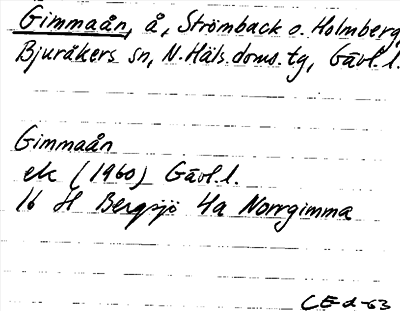 Gimmaån, å, Strömback o. Holmberg
Bjuråkers sn, N. Häls. doms. tg, Gävl. l.
Gimmaån
ek (1960) Gävl. l.
16 H Bergsjö 4a Norrgimma
CEd-63